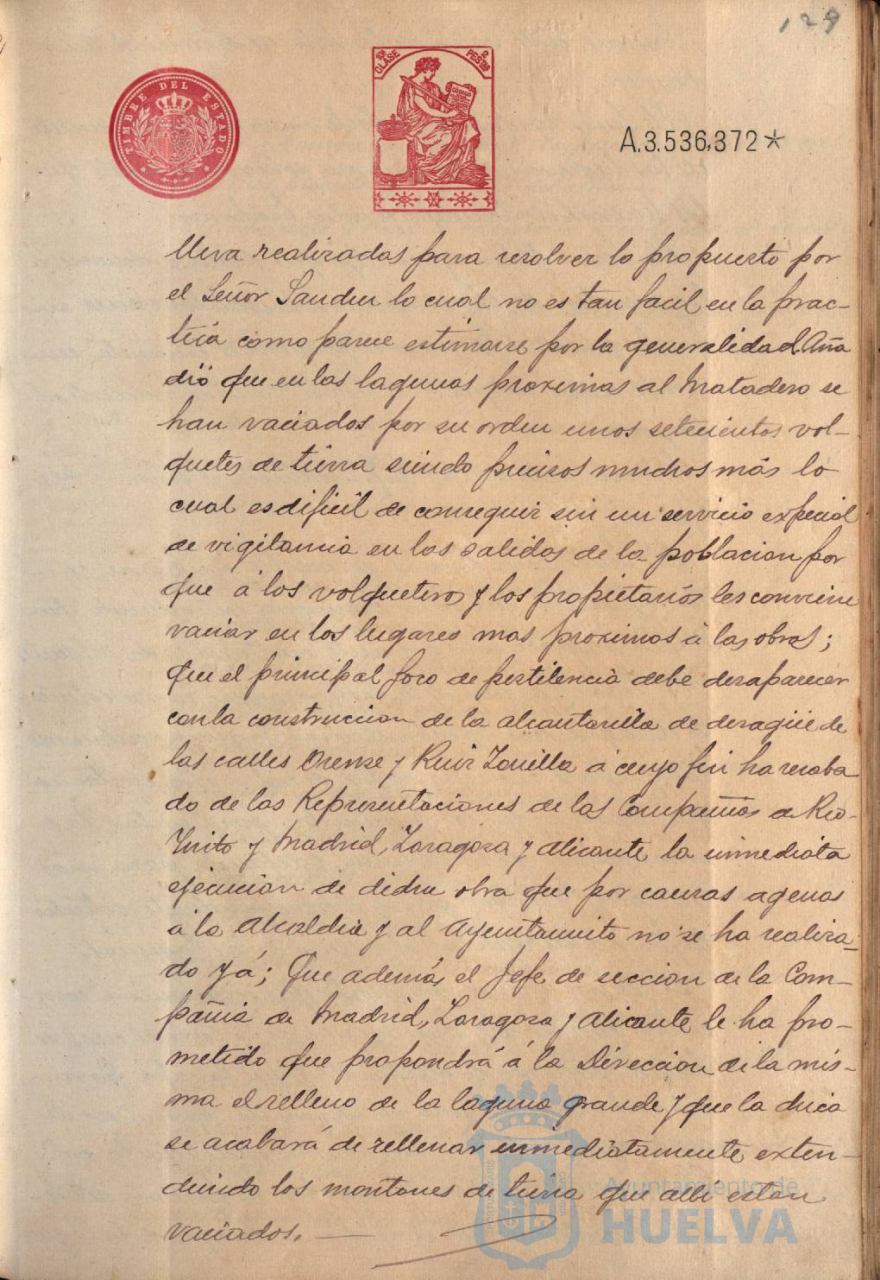 129
TIMBRE DEL ESTADO
10ª CLASE 2 PESTAS
A.3.536,372*
lleva realizadas para resolver lo propuesto por
el Señor Saudin lo cual no es tan facil en la prac-
tica como parece estimarse por la generalidad. Aña
dió que en las lagunas proximas al Matadero se
han vaciados por su orden unos setecientos vol-
quetes de tierra siendo precisos muchos más lo
cual es dificil de conseguir sin un servicio especial
de vigilancia en las salidas de la poblacion por
que á los volqueteros y los propietarios les conviene
vaciar en los lugares mas proximos á las obras;
que el principal foco de pestilencia debe desaparecer
con la construccion de la alcantarilla de desagüe de
las calles Orense y Ruiz Zorilla á cuyo fin ha recaba
do de las Representaciones de las Compañias de Rio-
Tinto y Madrid, Zaragoza y Alicante la inmediata
ejecucion de dicha obra que por causas agenas
á la Alcaldia y al Ayuntamiento no se ha realiza-
do yá; Que además el Jefe de seccion de la Com-
pañia de Madrid, Zaragoza y Alicante le ha pro-
metido que propondrá á la Direccion de la mis-
ma el relleno de la laguna grande y que la chica
se acabará de rellenar inmediatamente exten-
diendo los montones de tierra que alli estan
vaciados.
Ayuntamiento de
HUELVA